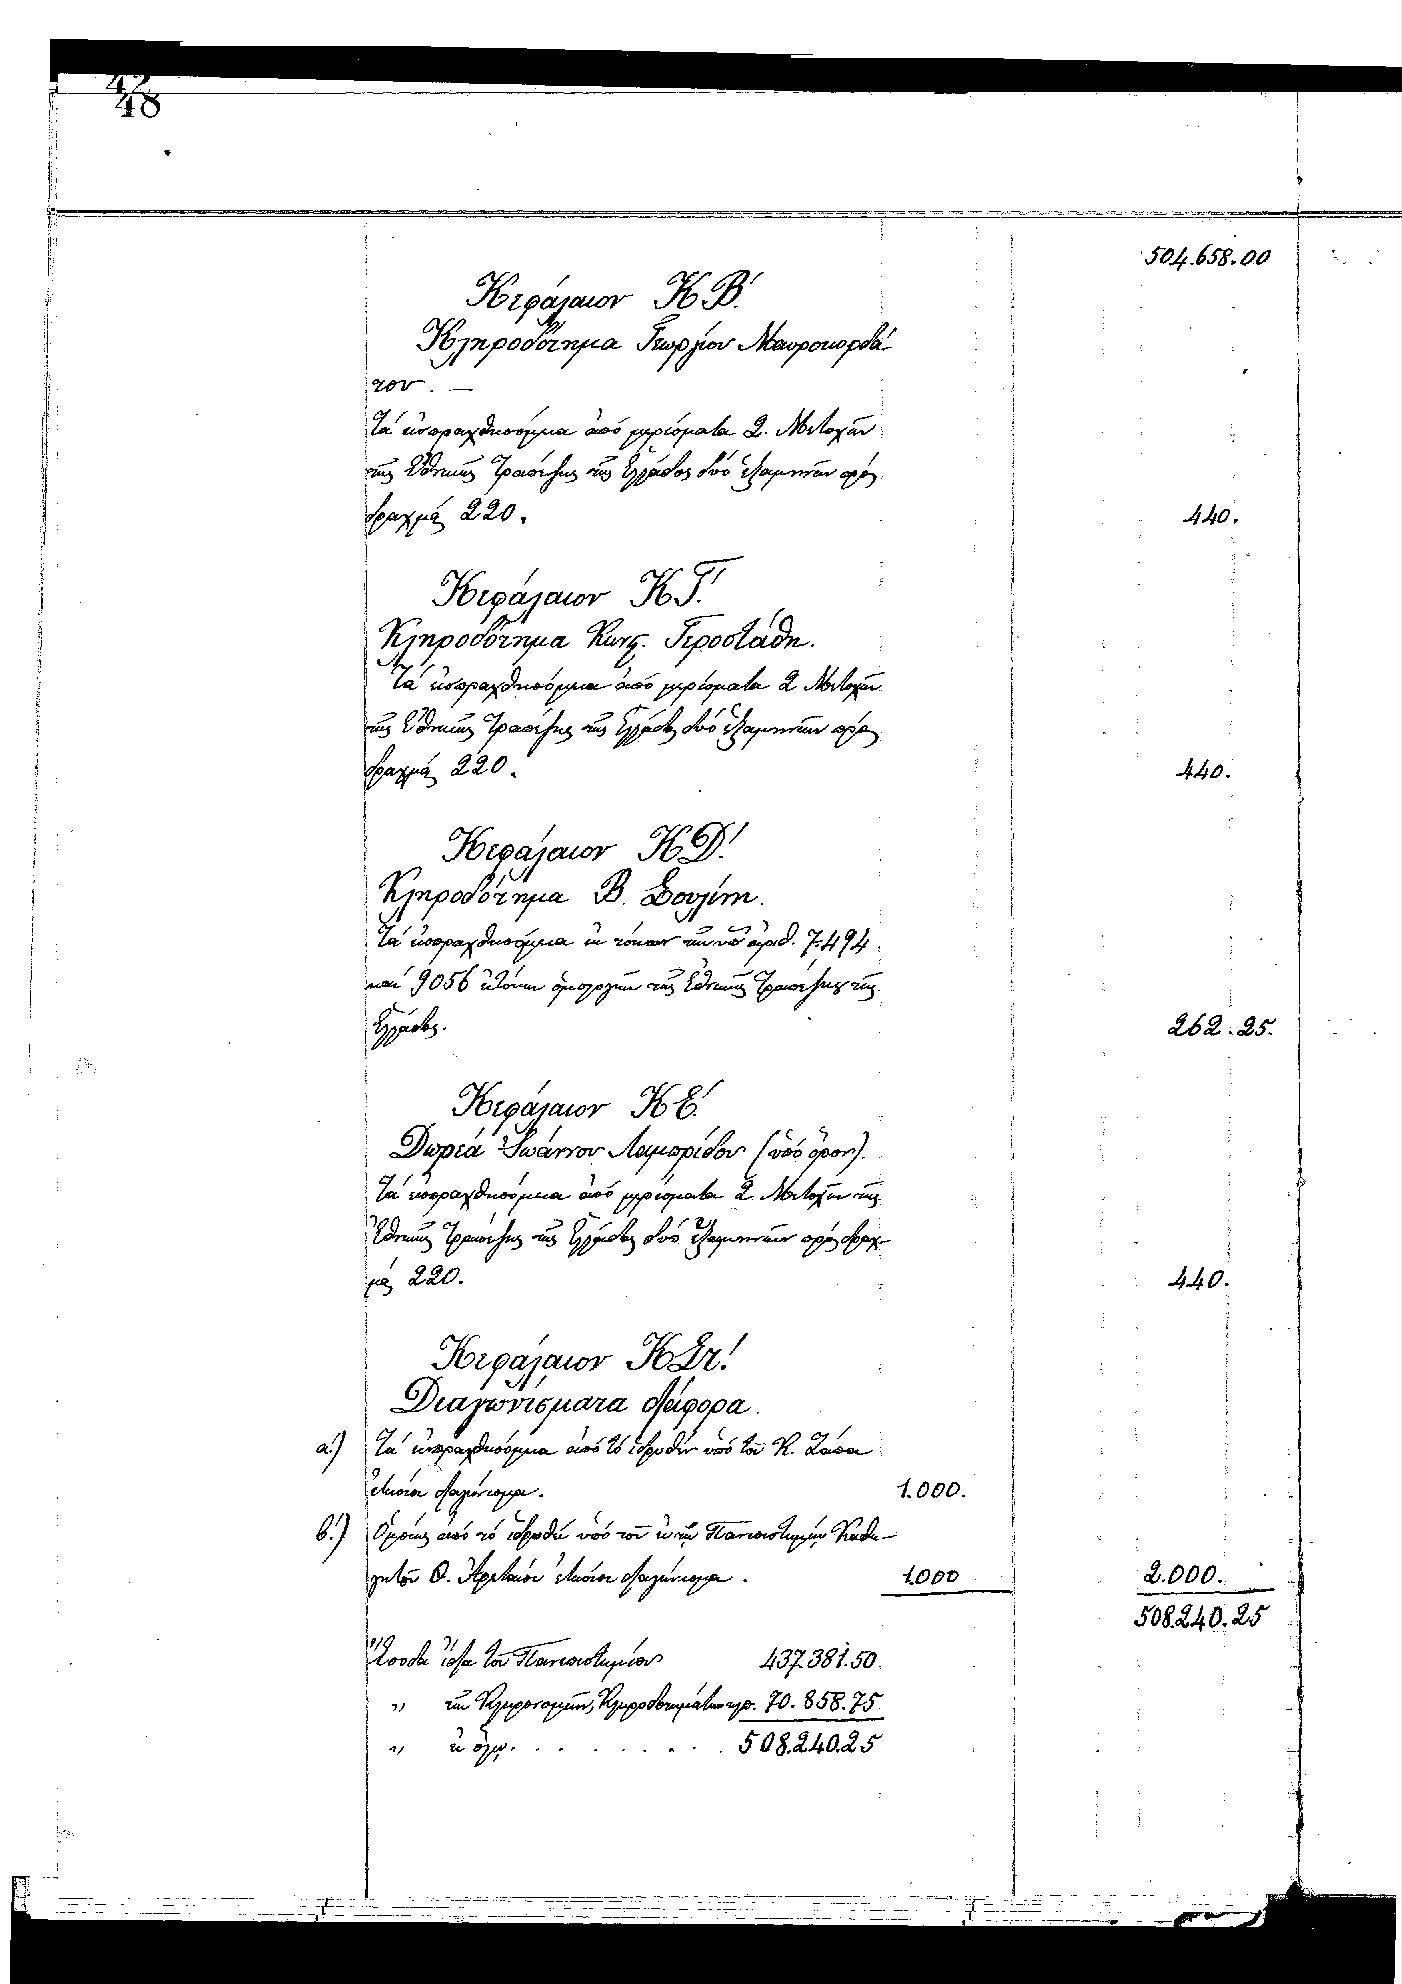 42
48
504.658.00
Κεφάλαιον ΚΒ΄.
Κληροδότημα Γεωργίου Μαυροκορδά-
του. —
Τὰ εἰσπραχθησόμενα ἀπὸ μερίσματα 2. Μετοχῶν
τῆς Ἐθνικῆς Τραπέζης τῆς Ἑλλάδος δύο ἑξαμηνιῶν πρὸς
δραχμὰς 220. 440.
Κεφάλαιον ΚΓ΄.
Κληροδότημα Κωνς. Γεροστάθη.
Τὰ εἰσπραχθησόμενα ἀπὸ μερίσματα 2 Μετοχῶν
τῆς Ἐθνικῆς Τραπέζης τῆς Ἑλλάδος δύο ἑξαμηνιῶν πρὸς
δραχμὰς 220. 440.
Κεφάλαιον ΚΔ΄.
Κληροδότημα Β. Σουλίνη.
Τὰ εἰσπραχθησόμενα ἐκ τόκων τῶν ὑπ' ἀριθ. 7.494
καὶ 9056 ἐντόκων ὁμολογιῶν τῆς Ἐθνικῆς Τραπέζης τῆς
Ἑλλάδος. 262.25.
Κεφάλαιον ΚΕ΄.
Δωρεὰ Ἰωάννου Λαμπρίδου (ὑπὸ ὅρον).
Τὰ εἰσπραχθησόμενα ἀπὸ μερίσματα 2 Μετοχῶν τῆς
Ἐθνικῆς Τραπέζης τῆς Ἑλλάδος δύο ἑξαμηνιῶν πρὸς δραχ-
μὰς 220. 440.
Κεφάλαιον ΚΣτ΄.
Διαγωνίσματα διάφορα.
α΄.) Τὰ εἰσπραχθησόμενα ἀπὸ τὸ ἱδρυθὲν ὑπὸ τοῦ Κ.
ἐτήσιον διαγώνισμα. 1.000.
β΄.) Ὁμοίως ἀπὸ τὸ ἱδρυθὲν ὑπὸ τοῦ ἐν τῷ Πανεπιστημίῳ Καθη-
γητοῦ Θ. Ἀρεταίου ἐτήσιον διαγώνισμα. 1.000 2.000.
508.240.25
Ἔσοδα ἴδια τοῦ Πανεπιστημίου 437.381.50.
〃 τῶν Κληρονομιῶν, Κληροδοτημάτων κλπ. 70.858.75
〃 ἐν ὅλῳ. . . . . . . . . 508.240.25